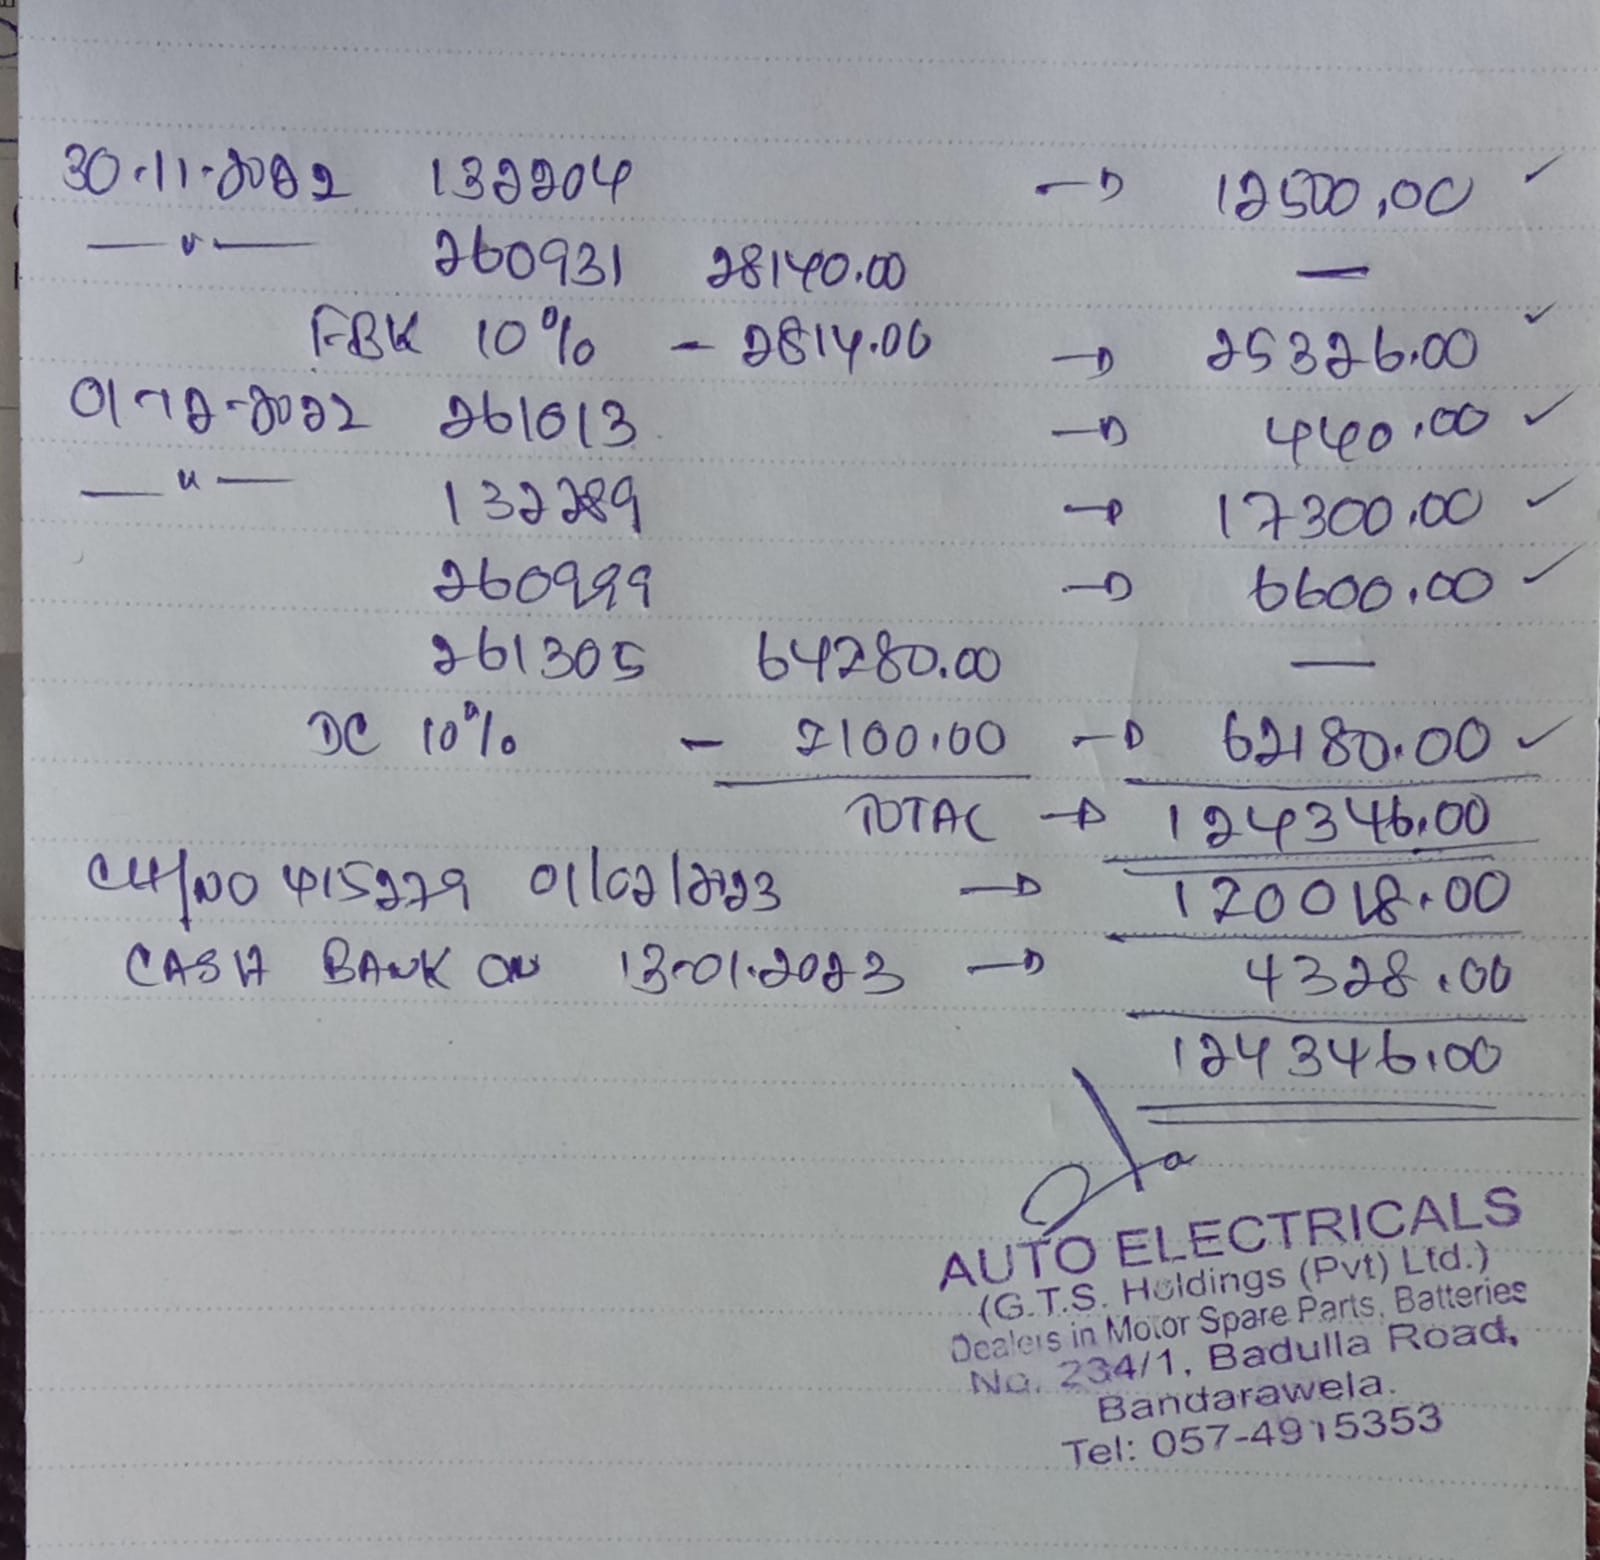 30-11-2022 132204 → 12500.00 ✓
—〃— 260931 28140.00 —
FBK 10% - 2814.00 → 25326.00 ✓
01-12-2022 261013 → 440.00 ✓
—〃— 132289 → 17300.00 ✓
260999 → 6600.00 ✓
261305 64280.00 —
DC 10% - 2100.00 → 62180.00 ✓
TOTAL → 124346.00
CH/NO 415279 01/02/2023 → 120018.00
CASH BANK ON 13-01-2023 → 4328.00
124346.00
AUTO ELECTRICALS
(G.T.S. Holdings (Pvt) Ltd.)
Dealers in Motor Spare Parts, Batteries
No. 234/1, Badulla Road,
Bandarawela.
Tel: 057-4915353